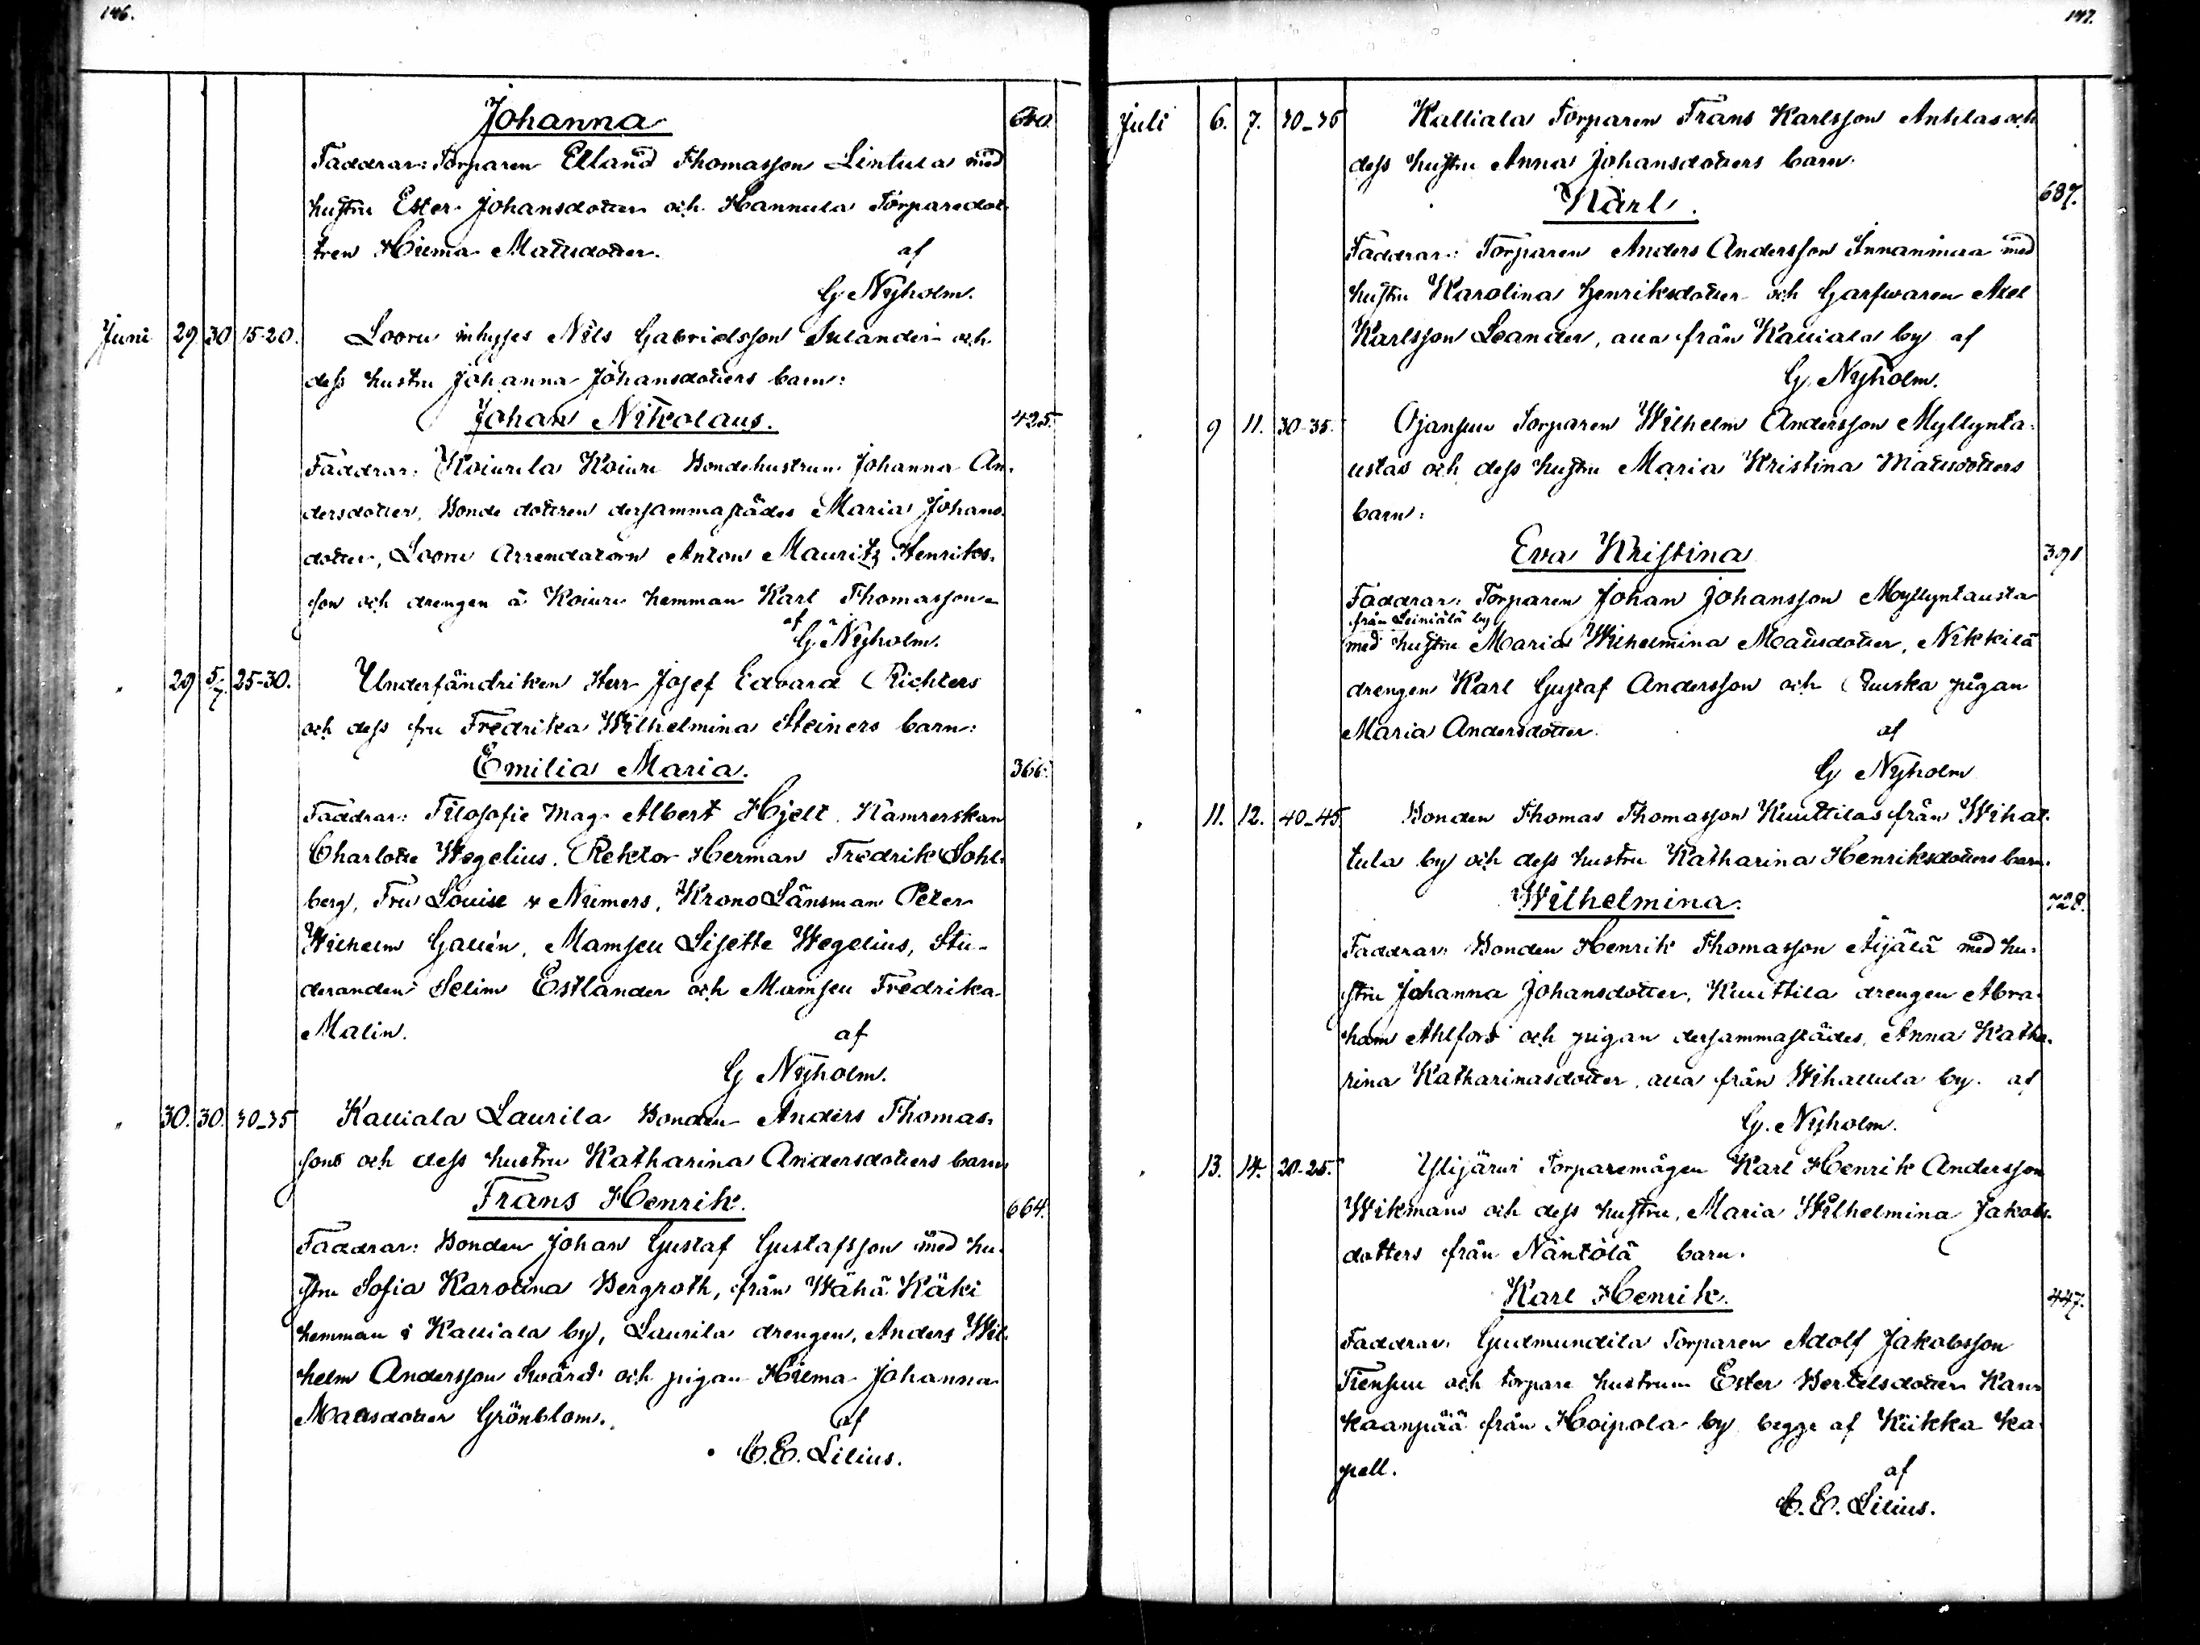 146.
Johanna 640.
Faddrar: Torparen Elland Thomasson Lintula med
hustru Ester Johansdotter och Hannula Torparedot
tren Hilma Mattsdotter. af
G Nyholm.
Juni 29 30 15-20. Looru inhyses Nils Gabrielsson Sulander och
dess hustru Johanna Johansdotters barn:
Johan Nikolaus. 425.
Faddrar: Koiurila Koiuri Bondehustrun Johanna An-
dersdotter, Bonde dottren dersammastädes Maria Johans-
dotter, Looru Arrendatorn Anton Mauritz Henriks-
son och drengen å Koiuri hemman Karl Thomasson
af G. Nyholm.
" 29 5/7. 25-30. Underfändriken Herr Josef Edvard Richters
och dess fru Fredrika Wilhelmina Steiners barn:
Emilia Maria. 366.
Faddrar: Filosofie Mag. Albert Hjelt. Kamrerskan
Charlotte Wegelius. Rektor Herman Fredrik Sohl-
berg, Fru Louise v Numers, KronoLänsman Peter
Wilhelm Gallén, Mamsell Lisette Wegelius, Stu-
deranden Selim Estlander och Mamsell Fredrika
Malin. af
G Nyholm.
" 30. 30. 30-35 Kalliala Laurila Bonden Anders Thomas-
sons och dess hustru Katharina Andersdotters barn
Frans Henrik. 664.
Faddrar: Bonden Johan Gustaf Gustafsson med hu-
stru Sofia Karolina Bergroth, från Wähä Käki
hemman i Kalliala by, Laurila drengen, Anders Wil-
helm Andersson Svärd och pigan Hilma Johanna
Mattsdotter Grönblom. af
C. E. Lilius.
147.
Juli 6. 7. 30-35 Kalliala Torparen Frans Karlsson Anttilas och
dess hustru Anna Johansdotters barn.
Karl. 687.
Faddrar: Torparen Anders Andersson Innanmaa med
hustru Karolina Henriksdotter och Garfwaren Axel
Karlsson Leander, alla från Kalliala by af
G. Nyholm.
" 9 11. 30-35. Ojansuu Torparen Wilhelm Andersson Myllynta-
ustas och dess hustru Maria Kristina Mattsdotters
barn:
Eva Kristina 391
Faddrar: Torparen Johan Johansson Myllyntausta
från Leiniälä by
med hustru Maria Wilhelmina Mattsdotter, Nikkilä
drengen Karl Gustaf Andersson och Ruuska pigan
Maria Andersdotter. af
G Nyholm
" 11. 12. 40-45. Bonden Thomas Thomasson Kuuttilas från Wihat-
tula by och dess hustru Katharina Henriksdotters barn.
Wilhelmina. 728.
Faddrar: Bonden Henrik Thomasson Äijälä med hu-
stru Johanna Johansdotter, Kuuttila drengen Abra-
ham Ahlfors och pigan dersammastädes, Anna Katha-
rina Katharinasdotter, alla från Wihattula by. af
G. Nyholm.
" 13. 14. 20-25. Ylijärwi Torparemågen Karl Henrik Andersson
Wikmans och dess hustru, Maria Wilhelmina Jakobs-
dotters från Näntölä barn.
Karl Henrik. 447.
Faddrar: Gudmundila Torparen Adolf Jakobsson
Tiensuu och torpare hustrun Ester Bertelsdotter Kan-
kaanpää från Hoipola by begge af Kiikka ka-
pell. af
C. E. Lilius.